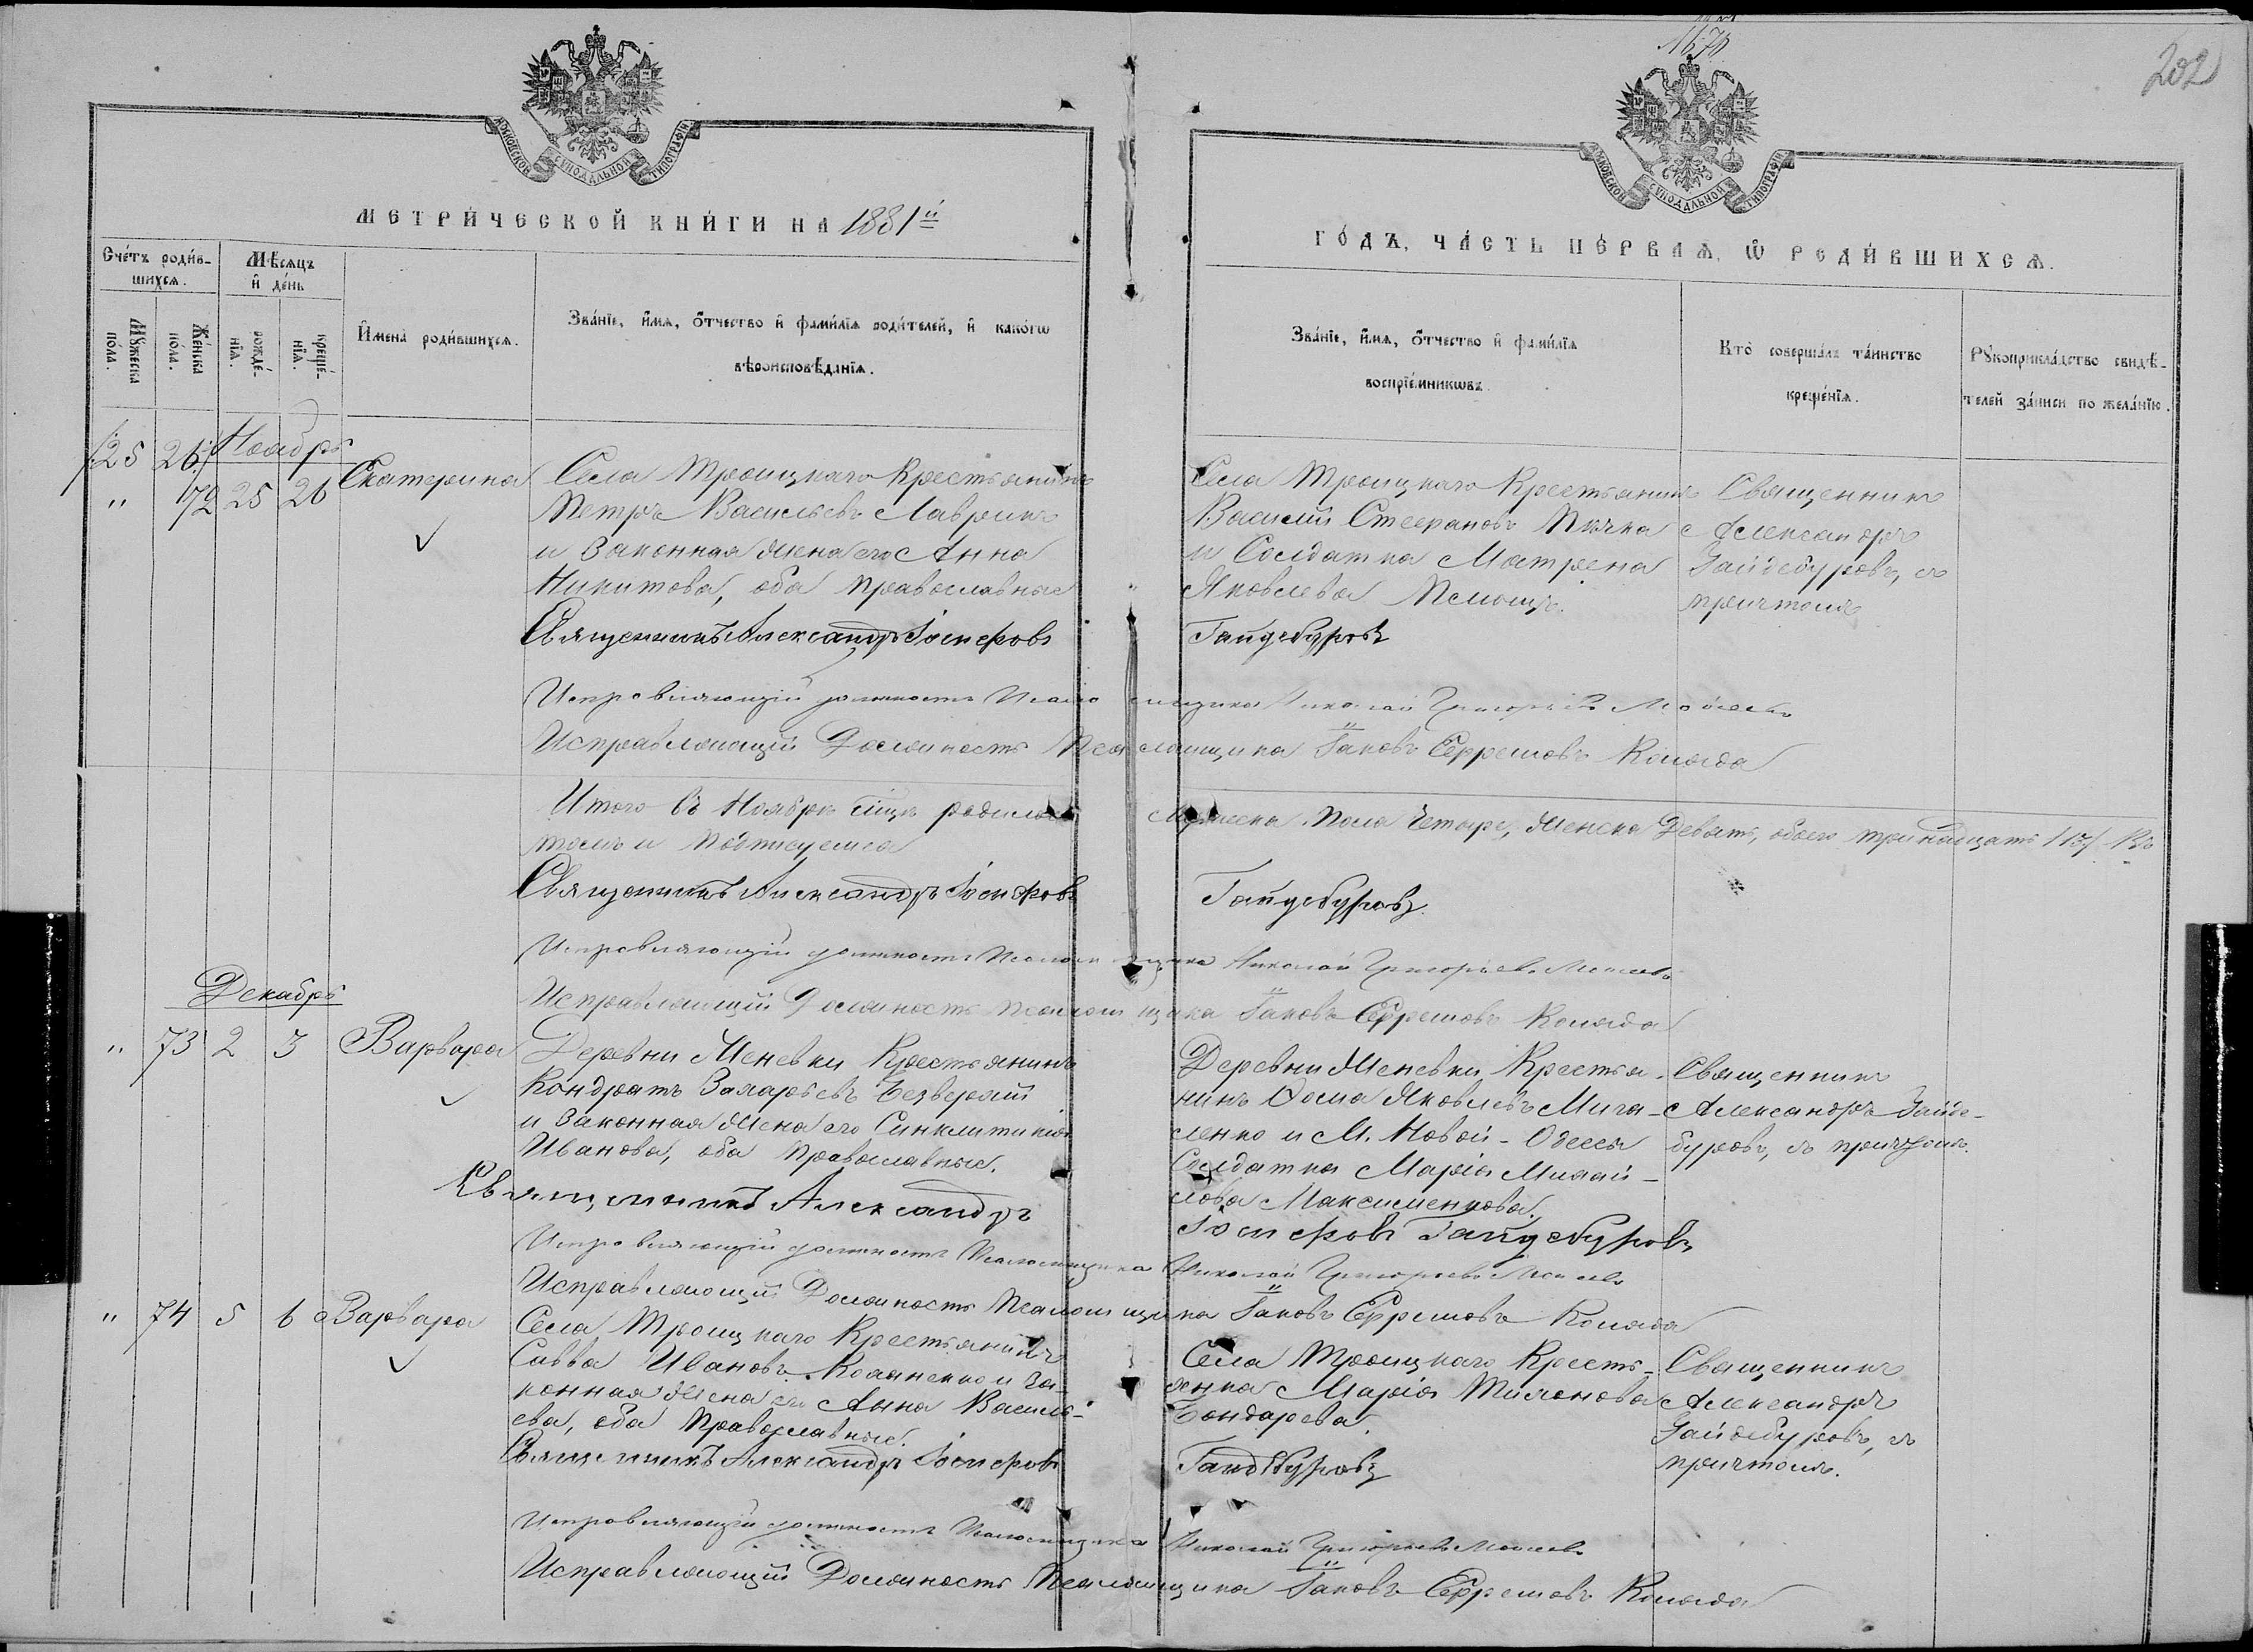 202
МОСКОВСКОЙ СѴНОДАЛЬНОЙ ТИПОГРАФІИ
МОСКОВСКОЙ СѴНОДАЛЬНОЙ ТИПОГРАФІИ
МЕТРИ́ЧЕСКОЙ КНИ́ГИ НА 1881й
ГО́ДЪ, ЧА́СТЬ ПЕ́РВАѦ, Ѡ҆ РОДИ́ВШИХСѦ.
Сче́тъ роди́в-
шихсѧ.
Мѣ́сѧцъ
и҆ де́нь
Мꙋ́жеска
по́ла.
Же́нска
по́ла.
рожде́-
нїѧ.
креще́-
нїѧ.
И҆мена̀ роди́вшихсѧ.
Зва́нїе, и҆́мѧ, ѻ҆́тчество и҆ фами́лїѧ роди́телей, и҆ како́гѡ
вѣроисповѣ́данїѧ.
Зва́нїе, и҆́мѧ, ѻ҆́тчество и҆ фами́лїѧ
воспрїе́мникѡвъ.
Кто̀ соверша́лъ та́инство
креще́нїѧ.
Рꙋкоприкла́дство свидѣ́-
телей за́писи по жела́нїю.
25 26 Ноябрь
" 72 25 26 Екатерина
Села Троицкаго Крестьянинъ
Петръ Васильевъ Лаврикъ
и законная жена его Анна
Никитова, оба православные
Села Троицкаго Крестьянинъ
Василій Стефановъ
и Солдатка Матрена
Яковлева
Священникъ
Александръ
Гайдебуровъ, съ
причтомъ
Священникъ Александръ Іосифовъ Гайдебуровъ
Исправляющій должность Псаломщика Николай Григорьевъ
Исправляющій Должность Псаломщика Іаковъ Ефремовъ Коляда
Итого въ Ноябрѣ м̃цѣ родилось Мужеска пола Четыре, Женска Девять, обоего тринадцать /13/ Въ
томъ и подписуемся
Священникъ Александръ Іосифовъ Гайдебуровъ
Исправляющій должность Псаломщика Николай Григорьевъ
Исправляющій Должность Псаломщика Іаковъ Ефремовъ Коляда
Декабрь
" 73 2 3 Варвара
Деревни Женевки Крестьянинъ
Кондратъ Захарьевъ Безверхій
и законная жена его Синклитикія
Иванова, оба православные.
Деревни Женевки Крестья-
нинъ Ѳома Яковлевъ Миха-
ленко и М. Новой-Одессы
Солдатка Марія Михай-
лова Максименкова.
Священникъ
Александръ Гайде-
буровъ, съ причтомъ.
Священникъ Александръ Іосифовъ Гайдебуровъ
Исправляющій должность Псаломщика Николай Григорьевъ
Исправляющій Должность Псаломщика Іаковъ Ефремовъ Коляда
" 74 5 6 Варвара
Села Троицкаго Крестьянинъ
Савва Ивановъ и за-
конная жена его Анна Василь-
ева, оба православные.
Села Троицкаго Кресть-
янка Марія Тихонова
Бондарева.
Священникъ
Александръ
Гайдебуровъ, съ
причтомъ.
Священникъ Александръ Іосифовъ Гайдебуровъ
Исправляющій должность Псаломщика Николай Григорьевъ
Исправляющій Должность Псаломщика Іаковъ Ефремовъ Коляда